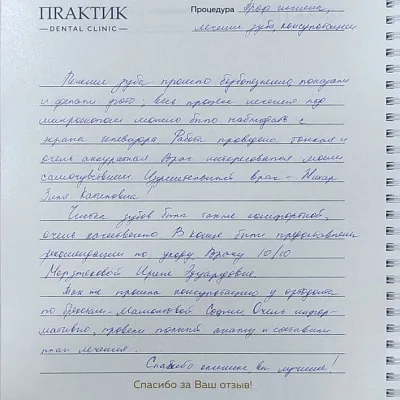 ПRАКТИК
— DENTAL CLINIC —
Процедура Проф гигиена,
лечение зуба, консультация
Лечение зуба прошло безболезненно, показали
и сделали фото, весь процесс лечения под
микроскопом можно было наблюдать с
экрана телевизора. Работа проведена тонкая и
очень аккуратная Врач интересовался моим
самочувствием Удивительный врач –
Чистка зубов была также комфортной,
очень качественно В конце были предоставлены
рекомендации по уходу Врачу 10/10
Ирине Эдуардовне.
Так же прошла консультацию у ортодонта
Очень инфор-
мативно, провели полный анализ и составили
план лечения.
Спасибо большое вы лучшие!
Спасибо за Ваш отзыв!